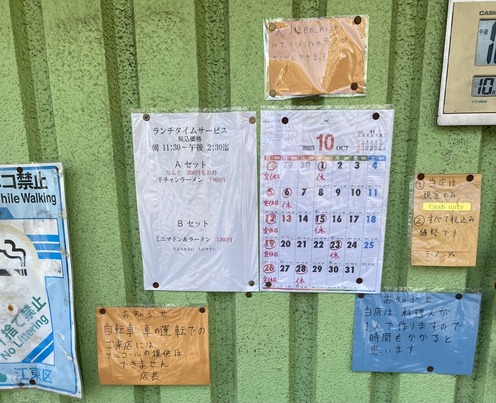 ランチタイムサービス
税込価格
(朝) 11:30～午後 2:30迄
Aセット
なんと 200円もお得
チャンラーメン
Bセット
ミニマドン&ラーメン 1300円
2025 10 OCT
29 30 1 2 3 4
定休日 休
5 6 7 8 9 10 11
定休日 休
12 13 14 15 16 17 18
定休日 休
19 20 21 22 23 24 25
定休日 休
26 27 28 29 30 31
定休日 休
①当店は
現金のみ
Cash only
②すべて税込み
価格です
ラーメン
お知らせ
自転車 車の運転での
ご来店には
アルコールの提供は
できません
店長
お知らせ
当店は料理人が
1人で作りますので
時間もかかると
思います
コ禁止
hile Walking
No Littering
江東区
CASIO
午後
10